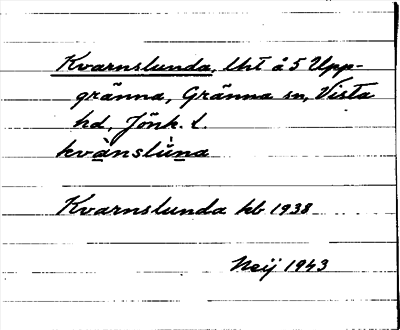 Kvarnslunda, lht å 5 Upp-
gränna, Gränna sn, Vista
hd, Jönk. l.
kvànslùna
Kvarnslunda kb 1938
Neij 1943